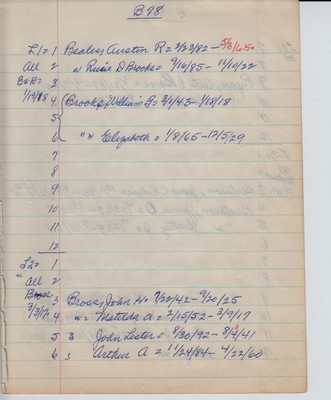 B 98
L1= 1 Beales, Auston R= 2/23/82 - 5/8/65
All 2 " w Rusie D Brooks= 9/16/85 - 11/10/22
B=R= 3
1/19/18 4 Brooks, William G= 3/1/43 - 1/18/18
5
6 " w Elizabeth = 1/8/65 - 12/5/29
7
8
9
10
11
12
L2= 1
" All 2
3 Bross, John H= 7/22/42 - 9/20/25
3/3/17 4 " w= Matilda a = 2/15/52 - 3/9/17
5 3 John Lester = 8/30/92 - 8/4/41
6 s Arthur a = 11/24/84 - 4/22/60